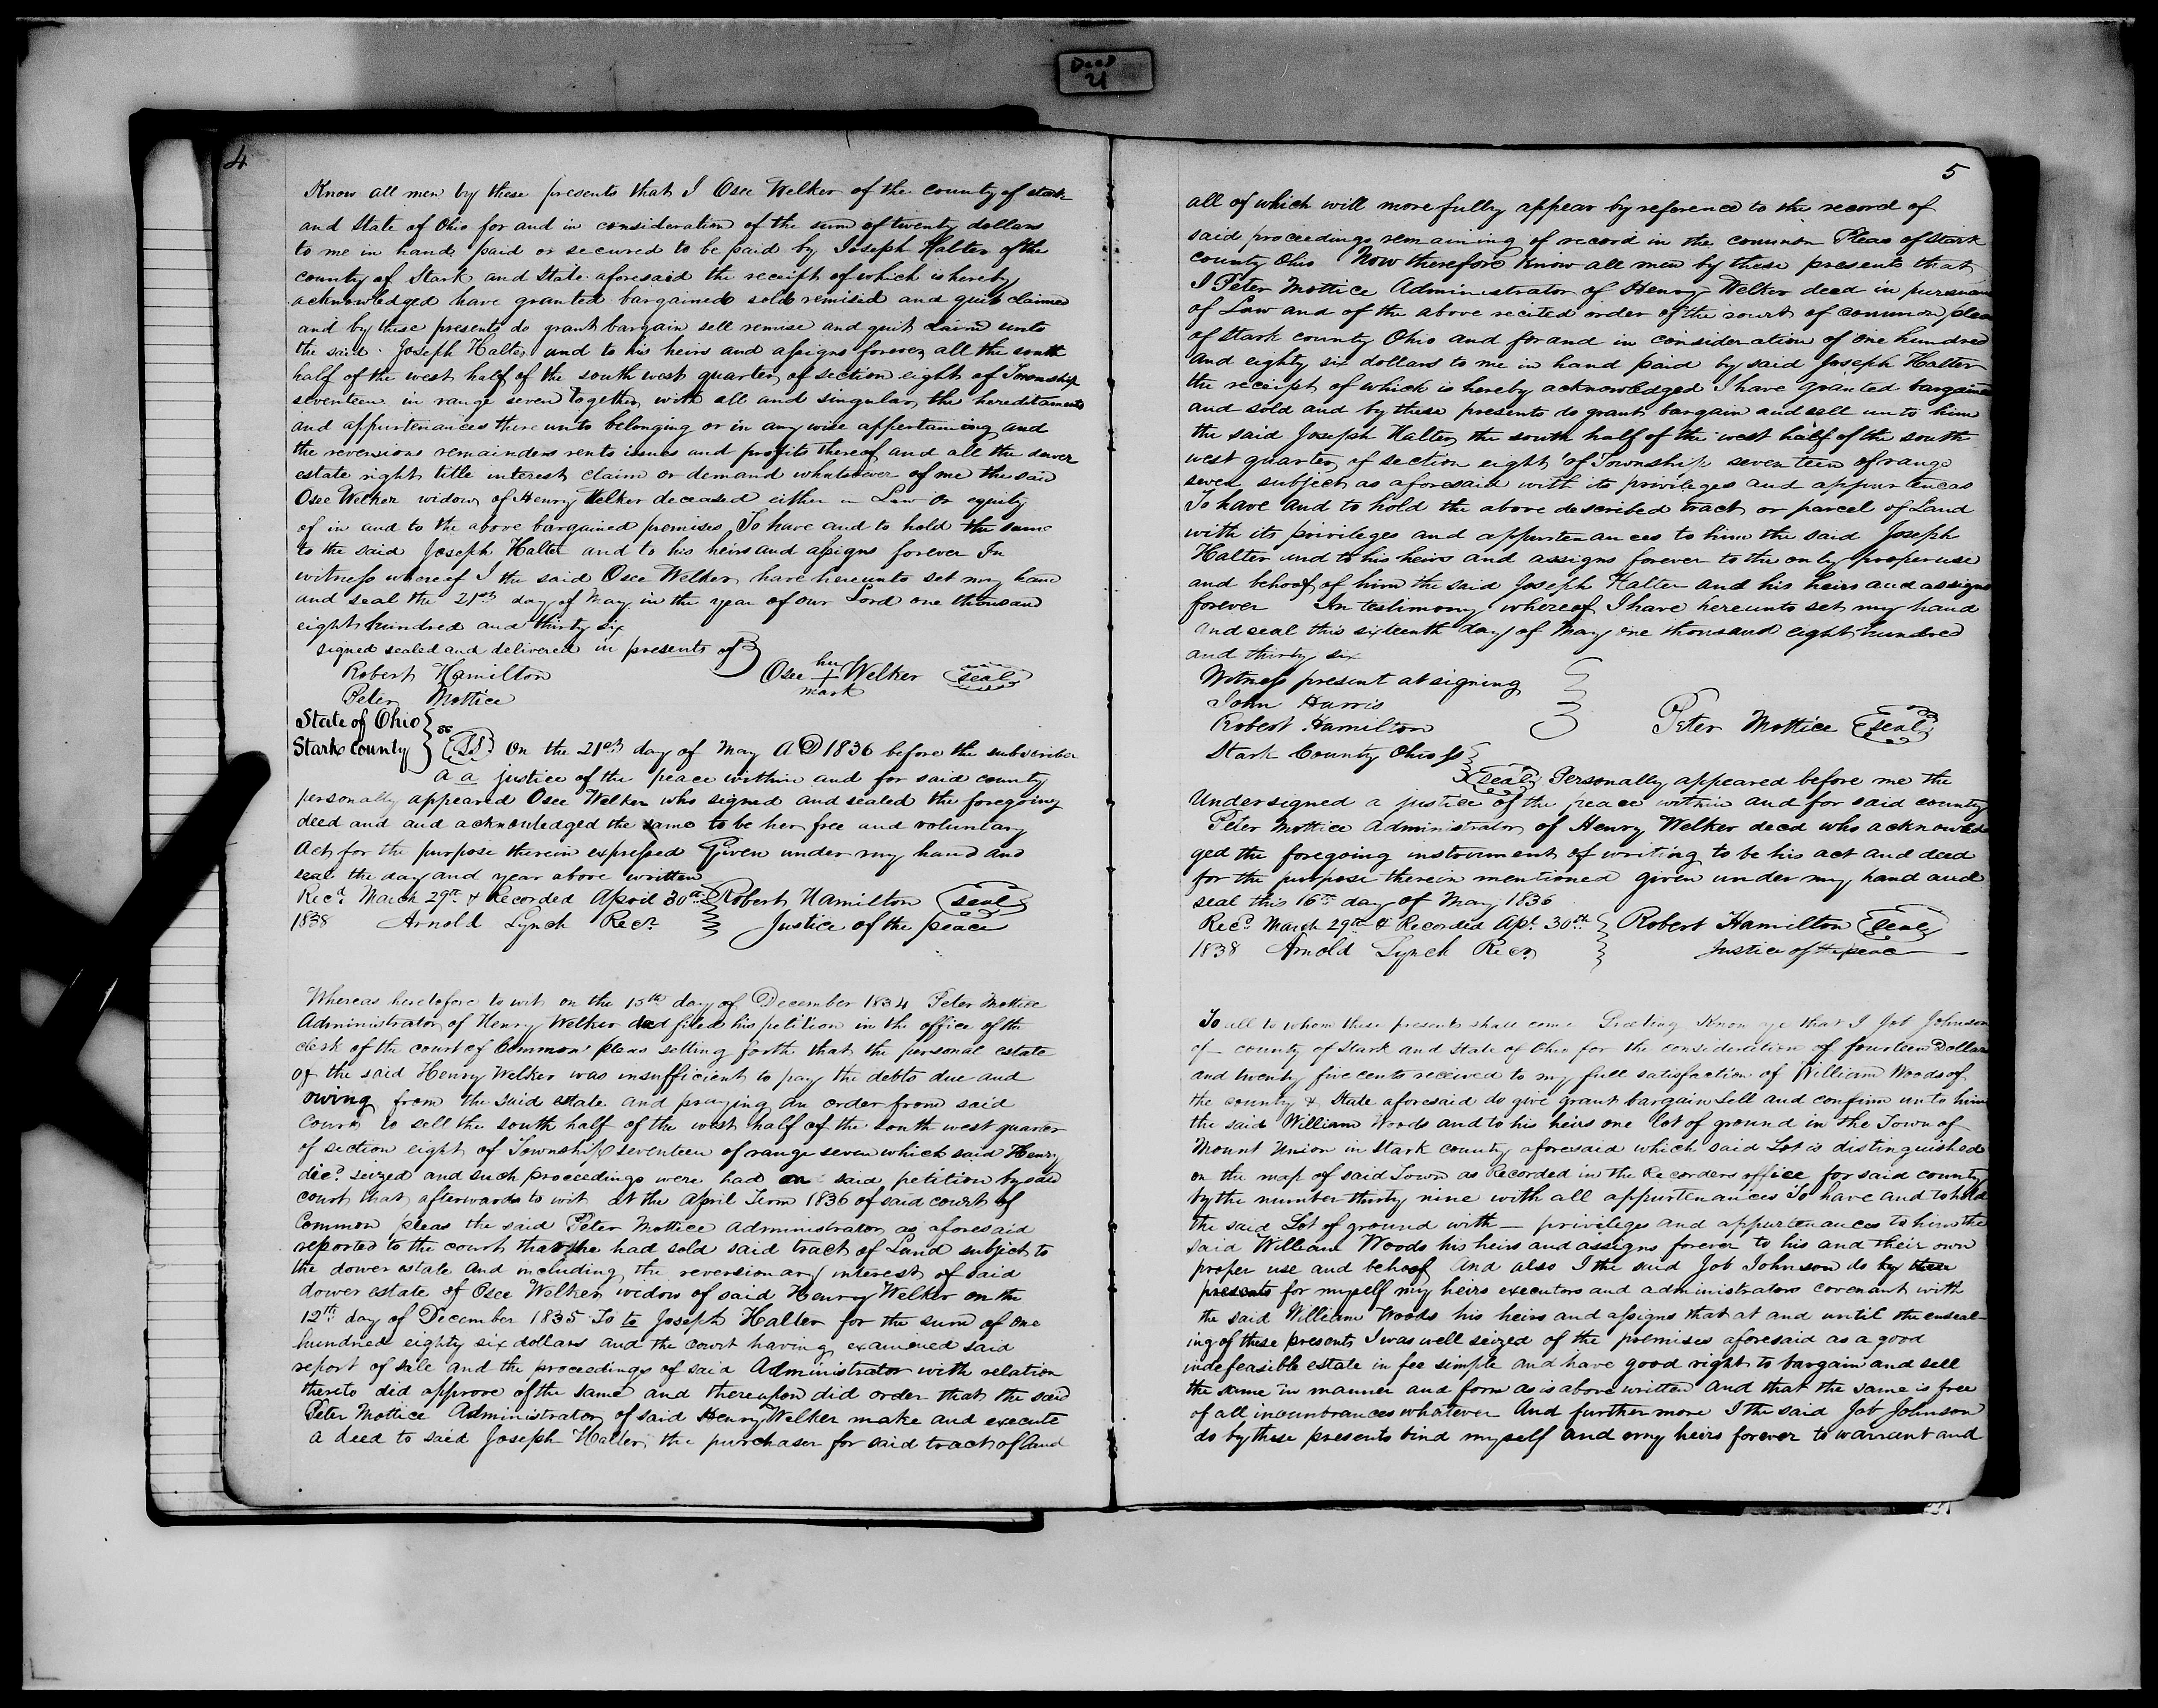 Deed
U
4
Know all men by these presents that I Osee Welker of the county of Stark
and State of Ohio for and in consideration of the sum of twenty dollars
to me in hand paid or secured to be paid by Joseph Halter of the
county of Stark and State aforesaid the receipt of which is hereby
acknowledged have granted bargained sold remised and quit claimed
and by these presents do grant bargain sell remise and quit claim unto
the said Joseph Halter and to his heirs and assigns forever all the south
half of the west half of the south west quarter of section eight of Township
seventeen in range seven together with all and singular the hereditaments
and appurtenances there unto belonging or in any wise appertaining and
the reversions remainders rents issues and profits thereof and all the dower
estate right title interest claim or demand whatsoever of me the said
Osee Welker widow of Henry Welker deceased either in Law or equity
of in and to the above bargained premises To have and to hold the same
to the said Joseph Halter and to his heirs and assigns forever In
witness whereof I the said Osee Welker have hereunto set my hand
and seal the 21st day of May in the year of our Lord one thousand
eight hundred and thirty six
signed sealed and delivered in presents of
Robert Hamilton
Peter Mottice
Osee her + mark Welker seal
State of Ohio
Stark County } ss
On the 21st day of May A D 1836 before the subscriber
a a justice of the peace within and for said county
personally appeared Osee Welker who signed and sealed the foregoing
deed and and acknowledged the same to be her free and voluntary
Act for the purpose therein expressed Given under my hand and
seal the day and year above written
Recd March 29th & Recorded April 30th Robert Hamilton seal
1838 Arnold Lynch Recr Justice of the peace
Whereas heretofore to wit on the 15th day of December 1834 Peter Mottice
Administrator of Henry Welker decd filed his petition in the office of the
clerk of the court of Common pleas setting forth that the personal estate
of the said Henry Welker was insufficient to pay the debts due and
owing from the said estate and praying an order from said
Court to sell the south half of the west half of the south west quarter
of section eight of Township seventeen of range seven which said Henry
decd seized and such proceedings were had on said petition by said
court that afterwards to wit at the April Term 1836 of said court of
Common pleas the said Peter Mottice Administrator as aforesaid
reported to the court that he had sold said tract of Land subject to
the dower estate and including the reversionary interest of said
dower estate of Osee Welker widow of said Henry Welker on the
12th day of December 1835 To to Joseph Halter for the sum of one
hundred eighty six dollars and the court having examined said
report of sale and the proceedings of said Administrator with relation
thereto did approve of the same and thereupon did order that the said
Peter Mottice Administrator of said Henry Welker make and execute
a deed to said Joseph Halter the purchaser for said tract of Land
5
all of which will more fully appear by reference to the record of
said proceedings remaining of record in the common Pleas of Stark
county Ohio Now therefore Know all men by these presents that
I Peter Mottice Administrator of Henry Welker decd in pursuance
of Law and of the above recited order of the court of common pleas
of Stark county Ohio and for and in consideration of one hundred
and eighty six dollars to me in hand paid by said Joseph Halter
the receipt of which is hereby acknowledged I have granted bargained
and sold and by these presents do grant bargain and sell unto him
the said Joseph Halter the south half of the west half of the south
west quarter of section eight of Township seventeen of range
seven subject as aforesaid with its privileges and appurtencas
To have and to hold the above described tract or parcel of Land
with its privileges and appurtenances to him the said Joseph
Halter and to his heirs and assigns forever to the only proper use
and behoof of him the said Joseph Halter and his heirs and assigns
forever In testimony whereof I have hereunto set my hand
and seal this sixteenth day of May one thousand eight hundred
and thirty six
Witness present at signing
John Harris
Robert Hamilton
Peter Mottice seal
Stark County Ohio ss
seal Personally appeared before me the
Undersigned a justice of the peace within and for said county
Peter Mottice Administrator of Henry Welker decd who acknowled
ged the foregoing instrument of writing to be his act and deed
for the purpose therein mentioned given under my hand and
seal this 16th day of May 1836
Recd March 29th & Recorded Apl 30th Robert Hamilton seal
1838 Arnold Lynch Recr Justice of the peace
To all to whom these presents shall come Greeting Know ye that I Job Johnson
of — county of Stark and State of Ohio for the consideration of fourteen Dollars
and twenty five cents received to my full satisfaction of William Woods of
the county & State aforesaid do give grant bargain Sell and confirm unto him
the said William Woods and to his heirs one lot of ground in the Town of
Mount Union in Stark county aforesaid which said Lot is distinguished
on the map of said Town as Recorded in the Recorders office for said county
by the number thirty nine with all appurtenances To have and to hold
the said Lot of ground with — privileges and appurtenances to him the
said William Woods his heirs and assigns forever to his and their own
proper use and behoof And also I the said Job Johnson do by these
presents for myself my heirs executors and administrators covenant with
the said William Woods his heirs and assigns that at and until the enseal-
ing of these presents I was well seized of the premises aforesaid as a good
indefeasible estate in fee simple and have good right to bargain and sell
the same in manner and form as is above written And that the same is free
of all incumbrances whatever And further more I the said Job Johnson
do by these presents bind myself and my heirs forever to warrant and